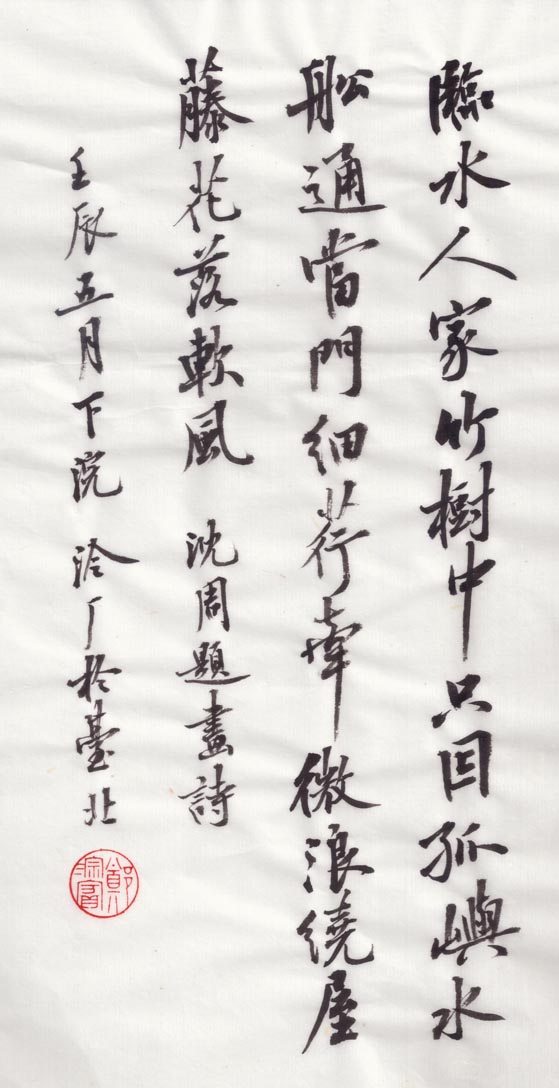 臨水人家竹樹中只因孤嶼水
舩通當門細荇牽微浪繞屋
藤花落軟風 沈周題畫詩
壬辰五月下浣 泠厂於臺北